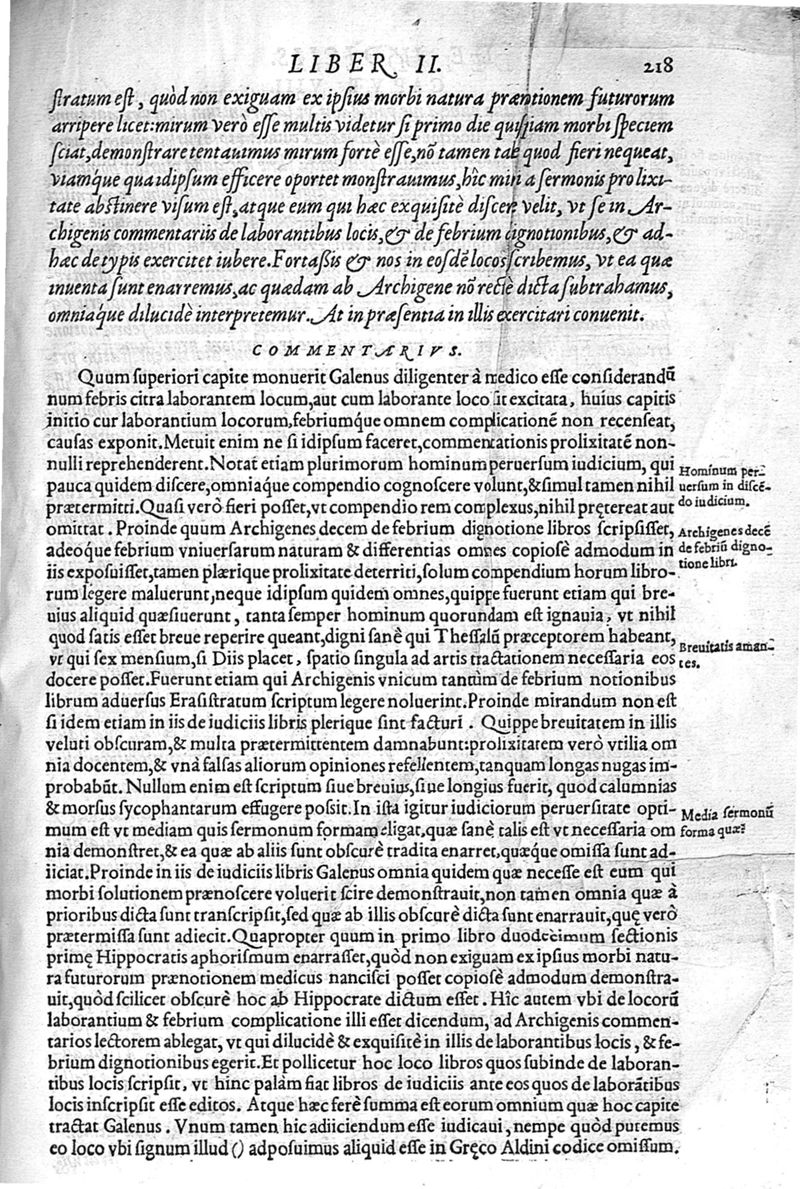 LIBER II. 218
stratum est, quòd non exiguam ex ipsius morbi natura prænotionem futurorum
arripere licet: mirum verò esse multis videtur si primo die quispiam morbi speciem
sciat, demonstrare tentauimus mirum fortè esse, nõ tamen tale quod fieri nequeat,
viamq́ue qua idipsum efficere oportet monstrauimus, hîc mihi a sermonis prolixi-
tate abstinere visum est, atque eum qui hæc exquisitè discere velit, vt se in Ar-
chigenis commentariis de laborantibus locis, & de febrium dignotionibus, & ad-
hæc de typis exercitet iubere. Fortaßis & nos in eosdẽ locos scribemus, vt ea quæ
inuenta sunt enarremus, ac quædam ab Archigene nõ rectè dicta subtrahamus,
omniaq́ue dilucidè interpretemur. At in præsentia in illis exercitari conuenit.
COMMENTARIVS.
Quum superiori capite monuerit Galenus diligenter à medico esse considerandũ
num febris citra laborantem locum, aut cum laborante loco sit excitata, huius capitis
initio cur laborantium locorum, febriumq́ue omnem complicationẽ non recenseat,
causas exponit. Metuit enim ne si idipsum faceret, commentationis prolixitatẽ non-
nulli reprehenderent. Notat etiam plurimorum hominum peruersum iudicium, qui
pauca quidem discere, omniaque compendio cognoscere volunt, & simul tamen nihil
prætermitti. Quasi verò fieri posset, vt compendio rem complexus, nihil prętereat aut
omittat. Proinde quum Archigenes decem de febrium dignotione libros scripsisset,
adeoq́ue febrium vniuersarum naturam & differentias omnes copiosè admodum in
iis exposuisset, tamen plærique prolixitate deterriti, solum compendium horum libro-
rum legere maluerunt, neque idipsum quidem omnes, quippe fuerunt etiam qui bre-
uius aliquid quæsiuerunt, tanta semper hominum quorundam est ignauia, vt nihil
quod satis esset breue reperire queant, digni sanè qui Thessalũ præceptorem habeant,
vt qui sex mensium, si Diis placet, spatio singula ad artis tractationem necessaria eos
docere posset. Fuerunt etiam qui Archigenis vnicum tantùm de febrium notionibus
librum aduersus Erasistratum scriptum legere noluerint. Proinde mirandum non est
si idem etiam in iis de iudiciis libris plerique sint facturi. Quippe breuitatem in illis
veluti obscuram, & multa prætermittentem damnabunt: prolixitatem verò vtilia om
nia docentem, & vnà falsas aliorum opiniones refellentem, tanquam longas nugas im-
probabũt. Nullum enim est scriptum siue breuius, siue longius fuerit, quod calumnias
& morsus sycophantarum effugere possit. In ista igitur iudiciorum peruersitate opti-
mum est vt mediam quis sermonum formam eligat, quæ sanè talis est vt necessaria om
nia demonstret, & ea quæ ab aliis sunt obscurè tradita enarret, quæq́ue omissa sunt ad-
iiciat. Proinde in iis de iudiciis libris Galenus omnia quidem quæ necesse est eum qui
morbi solutionem prænoscere voluerit scire demonstrauit, non tamen omnia quæ à
prioribus dicta sunt transcripsit, sed quæ ab illis obscurè dicta sunt enarrauit, quę verò
prætermissa sunt adiecit. Quapropter quum in primo libro duodecimum sectionis
primę Hippocratis aphorismum enarrasset, quòd non exiguam ex ipsius morbi natu-
ra futurorum prænotionem medicus nancisci posset copiosè admodum demonstra-
uit, quòd scilicet obscurè hoc ab Hippocrate dictum esset. Hîc autem vbi de locorũ
laborantium & febrium complicatione illi esset dicendum, ad Archigenis commen-
tarios lectorem ablegat, vt qui dilucidè & exquisitè in illis de laborantibus locis, & fe-
brium dignotionibus egerit. Et pollicetur hoc loco libros quos subinde de laboran-
tibus locis scripsit, vt hinc palàm fiat libros de iudiciis ante eos quos de laborãtibus
locis inscripsit esse editos. Atque hæc ferè summa est eorum omnium quæ hoc capite
tractat Galenus. Vnum tamen hic adiiciendum esse iudicaui, nempe quòd putemus
eo loco vbi signum illud () adposuimus aliquid esse in Gręco Aldini codice omissum.
Hominum per-
uersum in discẽ-
do iudicium.
Archigenes decẽ
de febriũ digno-
tione libri.
Breuitatis aman-
tes.
Media sermonũ
forma quæ?